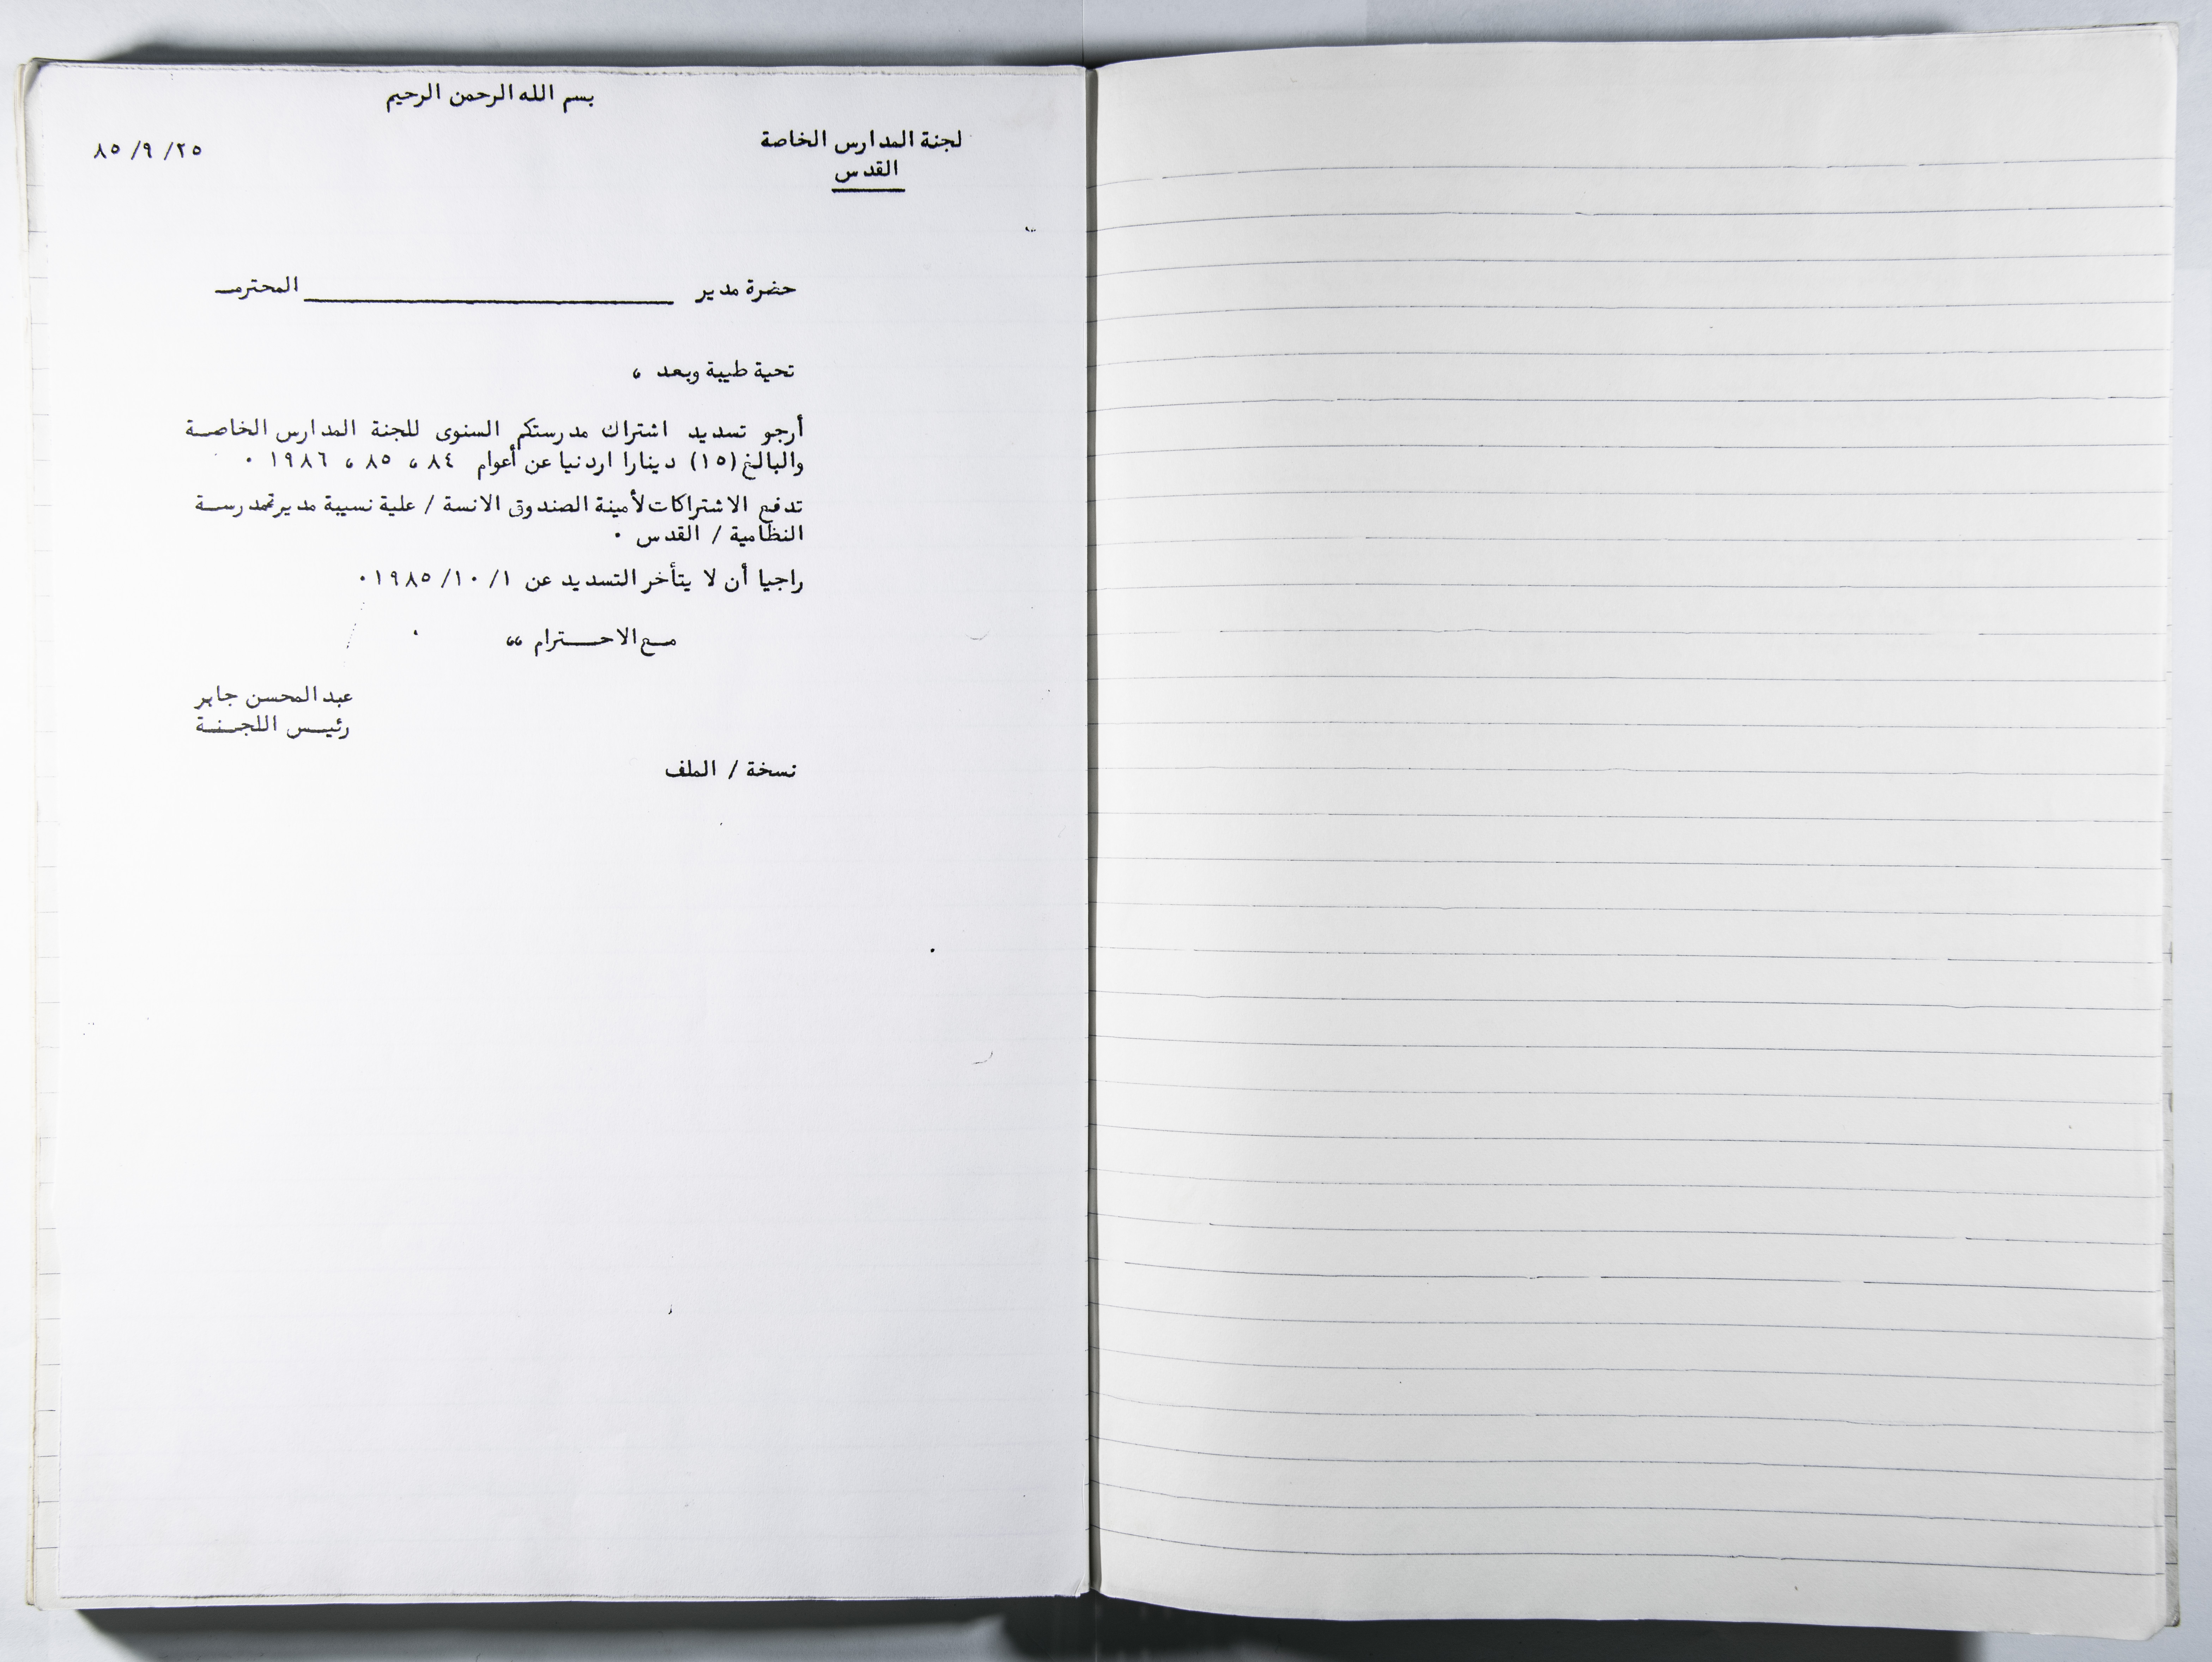 بسم الله الرحمن الرحيم
لجنة المدارس الخاصة
القدس
٢٥/ ٩/ ٨٥
حضرة مدير ــــــــــــــــ المحترمـ
تحية طيبة وبعد ،
أرجو تسديد اشتراك مدرستكم السنوى للجنة المدارس الخاصــة
والبالغ (١٥) دينارا اردنيا عن أعوام ٨٤ ، ٨٥ ، ١٩٨٦ ٠
تدفع الاشتراكات لأمينة الصندوق الانسة / علية نسيبة مديرة مدرســة
النظامية / القدس ٠
راجيا أن لا يتأخر التسديد عن ١/ ١٠/ ١٩٨٥ ٠
مــع الاحــترام ،،
عبد المحسن جابر
رئيــس اللجــنــة
نسخة / الملف